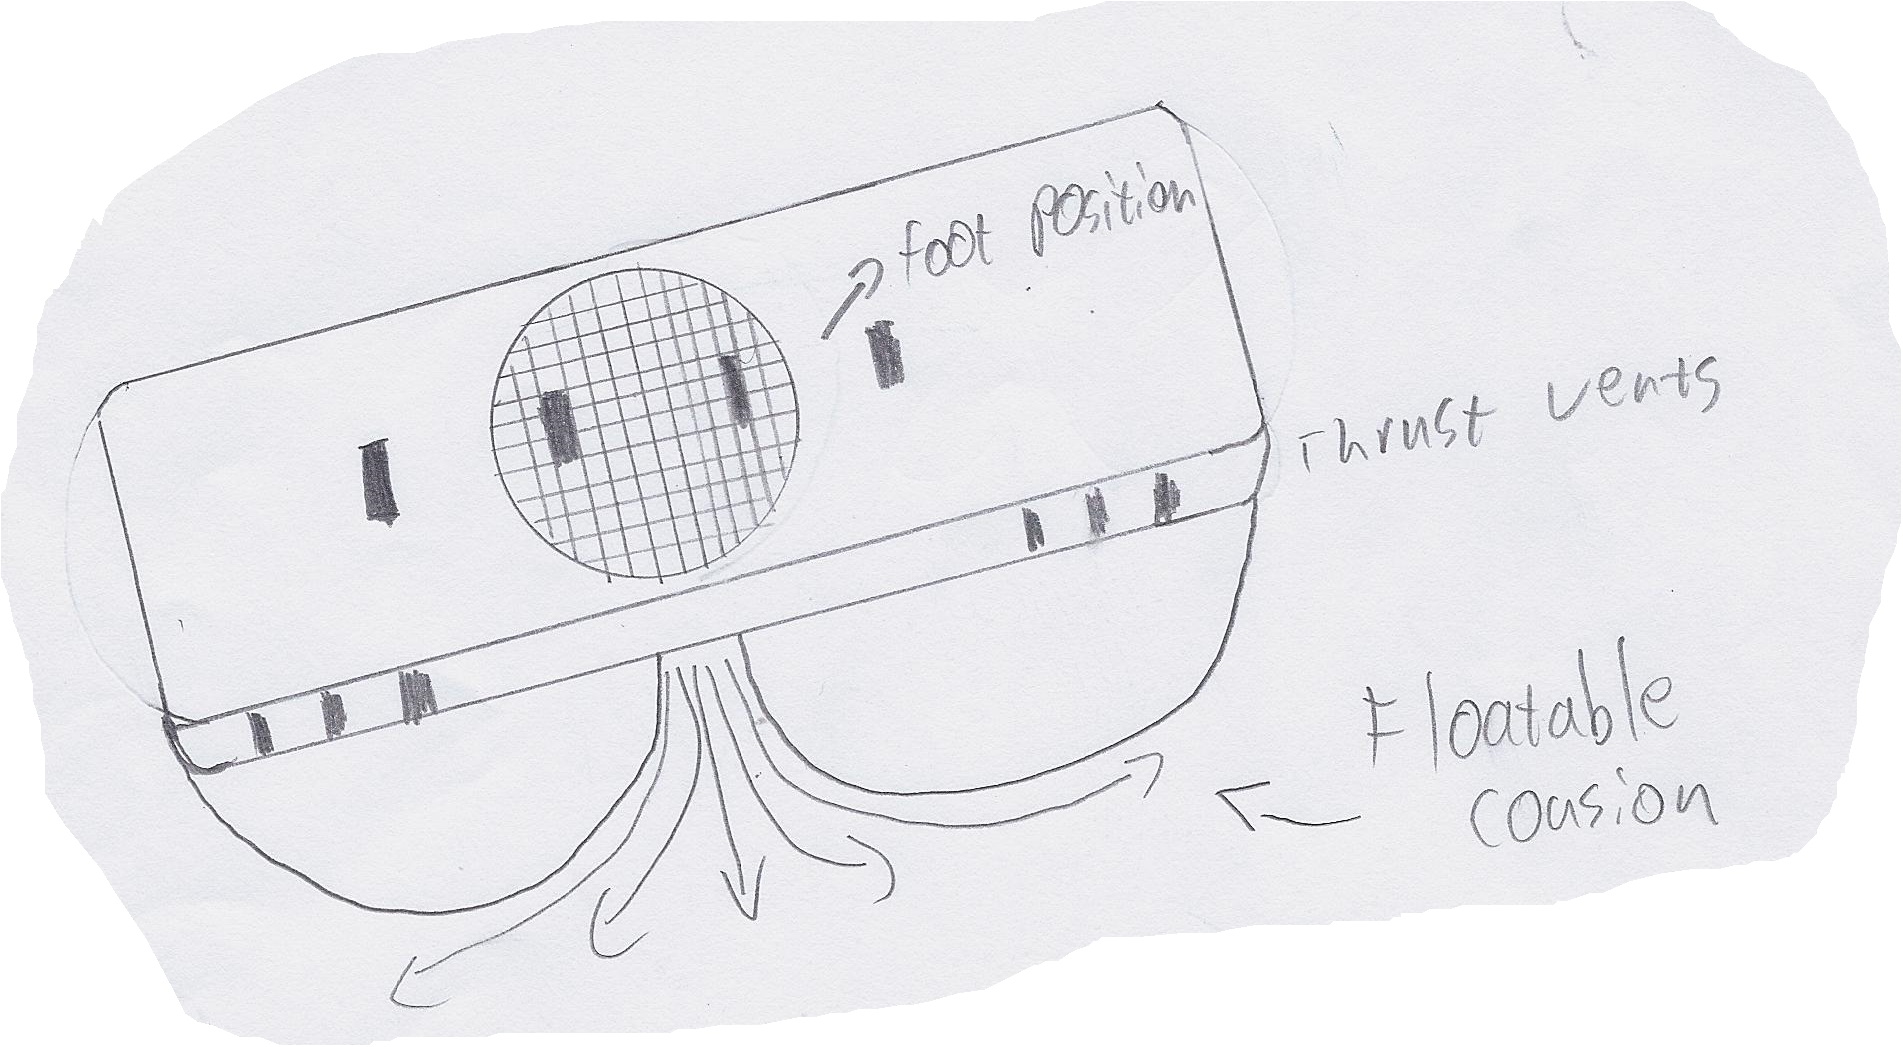 foot position
Thrust vents
Floatable
cousion